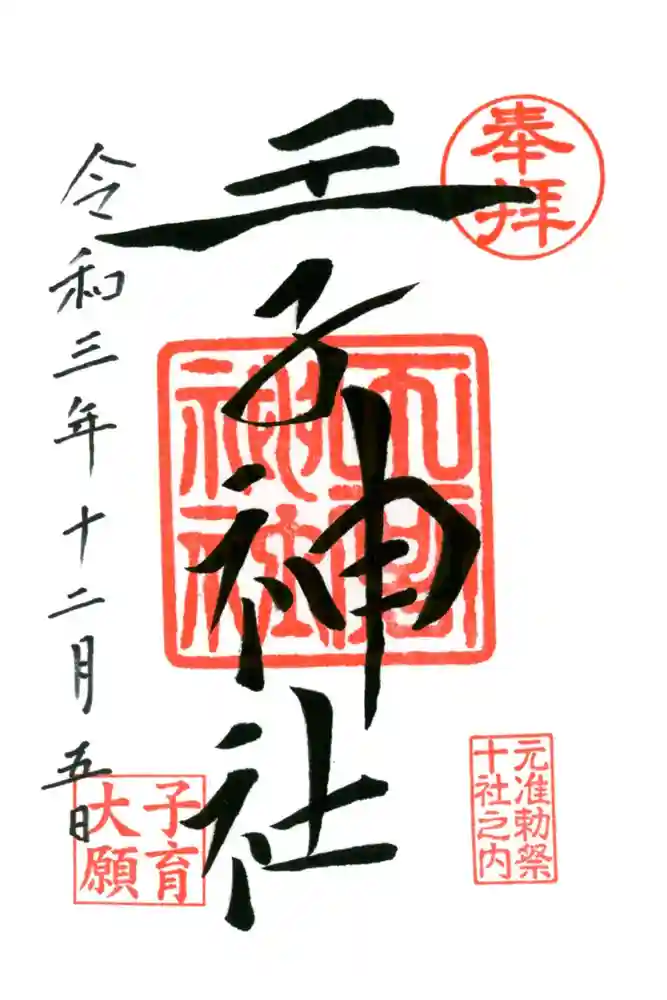 奉拝
元准勅祭
十社之内
王子神社
神社
令和三年十二月五日
子育
大願